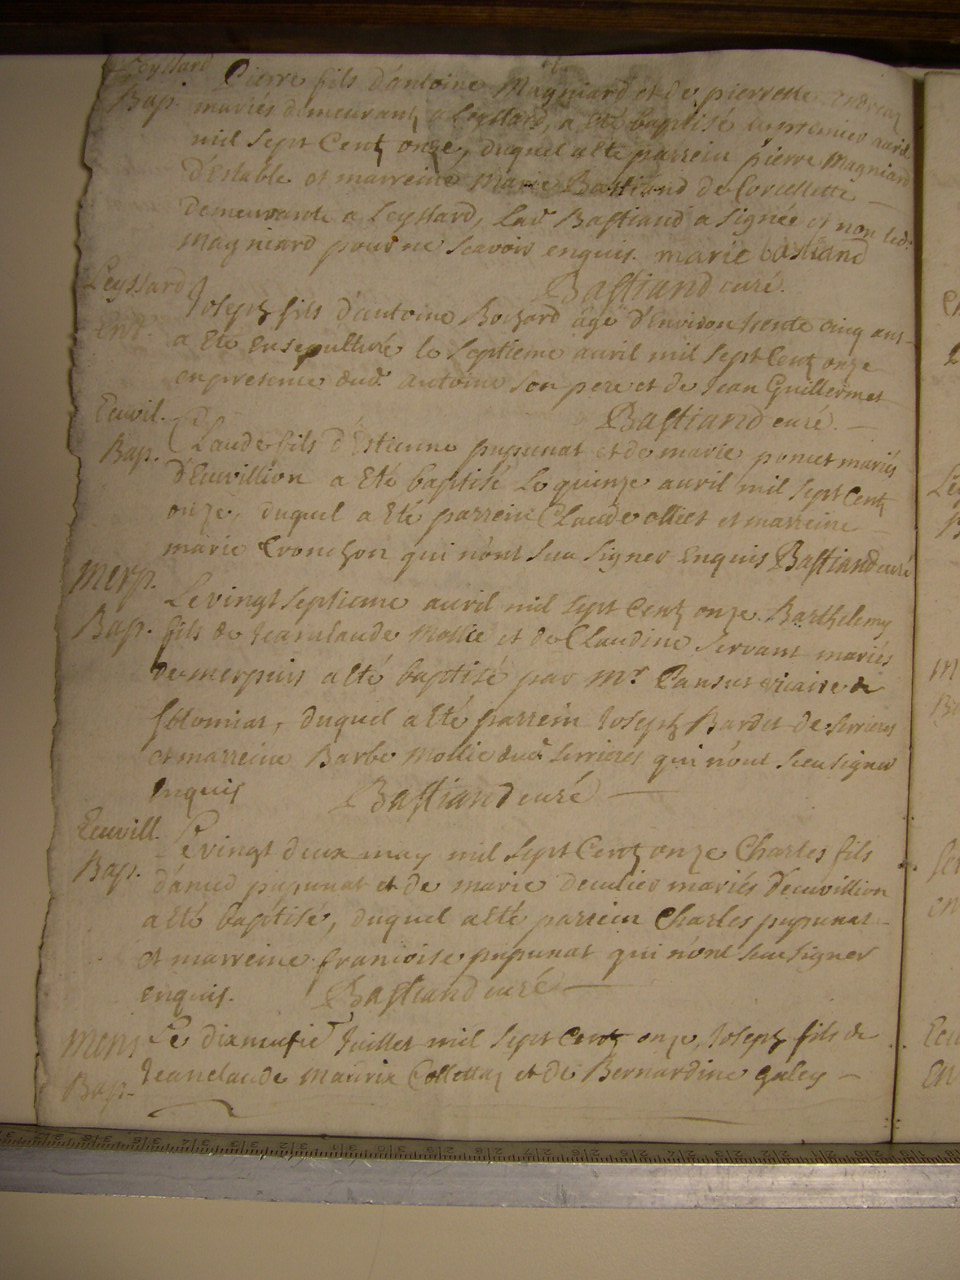 Leyssard Pierre fils d'antoine Magniard et de pierrette andreaz
Bap. mariés demeurantz a Leyssard, a eté baptisé le premier avril
mil sept Centz onze, duquel a eté parrein pierre Magniard
D'Estable et marreine Marie Bastiand de Corcellette
demeurante a Leyssard, Lad. Bastiand a signée et non led.
Magniard pour ne scavoir enquis. marie bastiand
Bastiand curé.
Leyssard Joseph fils d'antoine Bochard âgé d'Environ trente cinq ans
Ent. a Eté Ensepulturé le septieme avril mil sept Centz onze
en presence dud. antoine son pere et de Jean Guillermet
Bastiand curé.
Ecuvil. Claude fils d'Estienne pupunat et de marie poncet mariés
Bap. D'Ecuvillion a Eté baptisé Le quinze avril mil sept Centz
onze, duquel a Eté parrein Claude ollier et marreine
marie Tronchon qui n'ont sceu signer Enquis Bastiand curé
Merp. Le vingt septieme avril mil sept Centz onze Barthelemy
Bap. fils de Jeanclaude Mollie et de Claudine Servant mariés
de merpuis a eté baptisé par Mr. Pansut vicaire de
Solomiat, duquel a Eté parrein Joseph Bardet de serrieres
et marreine Barbe Mollie dud. serrieres qui n'ont sceu signer
Enquis Bastiand curé
Ecuvill. Le vingt deux may mil sept Centz onze Charles fils
Bap. d'amed pupunat et de marie deculies mariés d'ecuvillion
a Eté baptisé, duquel a eté parrein Charles pupunat
et marreine francoise pupunat qui n'ont sceu signer
Enquis. Bastiand curé
Mens Le dixneufie Juillet mil sept Centz onze, Joseph fils de
Bap. Jeanclaude Maurix Collettaz et de Bernardine galey